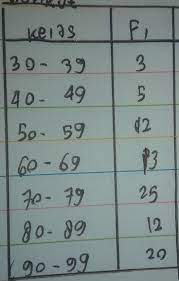 kelas F1
30 - 39 3
40 - 49 5
50 - 59 12
60 - 69 13
70 - 79 25
80 - 89 12
90 - 99 20